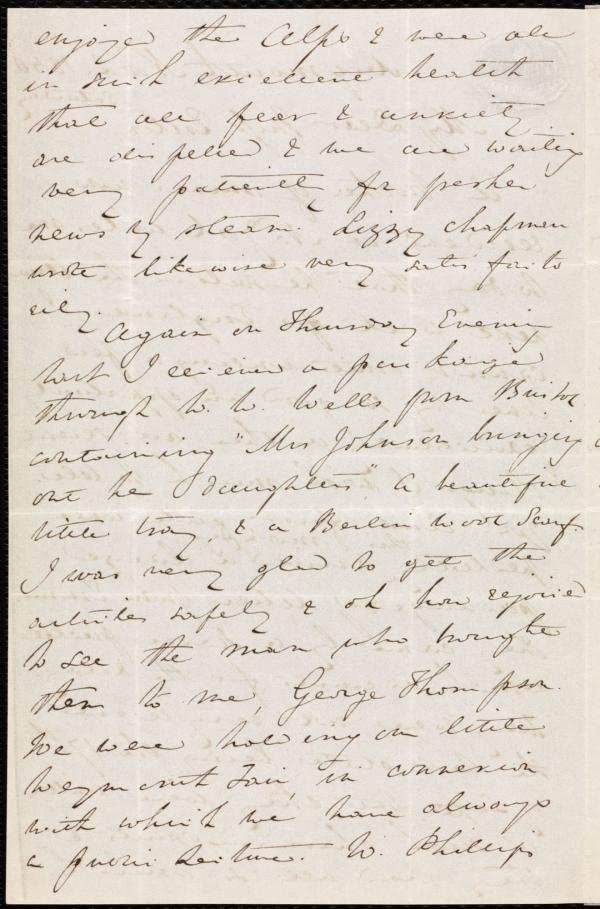 enjoyed the Alps & were all
in such excellent health
that all fear & anxiety
are dispelled & we are waiting
very patiently for fresher
news by steam. Lizzy Chapman
wrote likewise very satisfacto
rily.
Again on Thursday Evening
last I received a package
through W. W. Wells from Bristol
containing "Mrs Johnson bringing
out her daughters" A beautiful
little tray, & a Berlin wool Scarf.
I was very glad to get the
articles safely & oh how rejoiced
to see the man who brought
them to me, George Thompson.
We were holding our little
Weymouth Fair, in connexion
with which we have always
a public lecture. W. Phillips